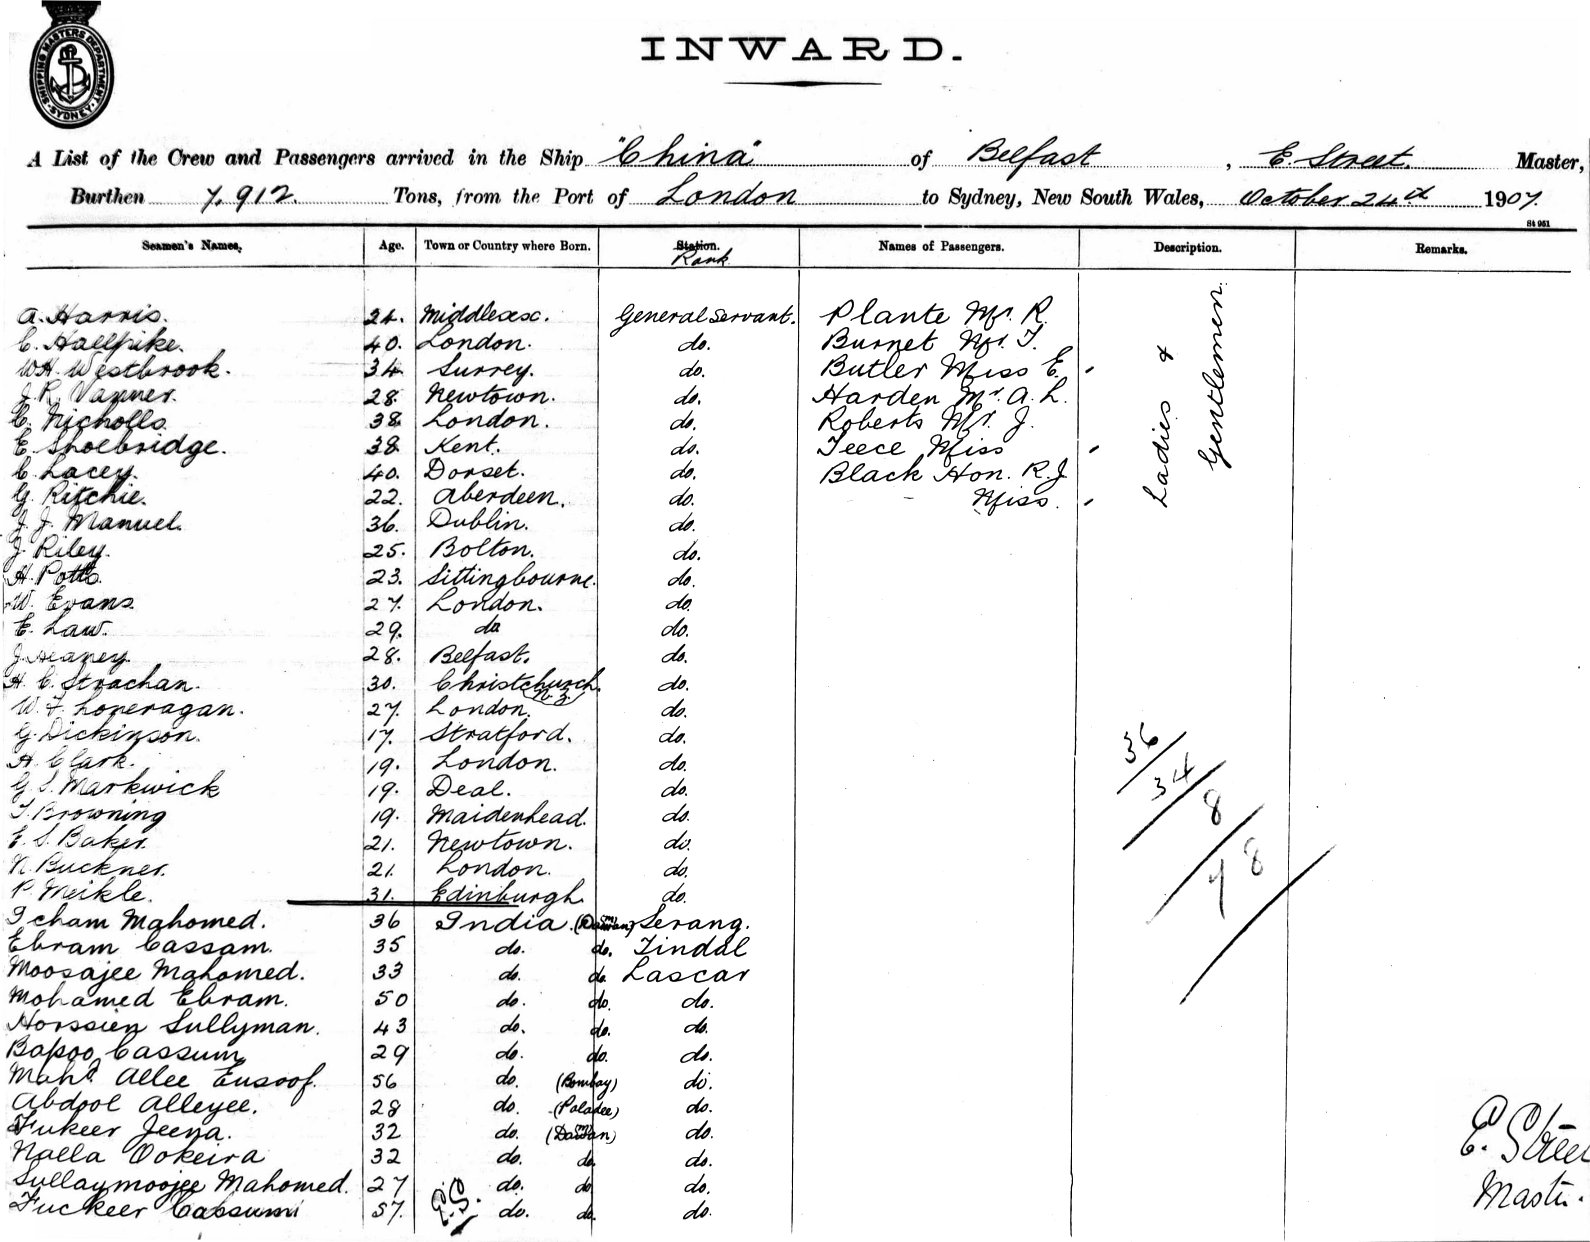 SHIPPING MASTERS DEPARTMENT
SYDNEY
INWARD.
A List of the Crew and Passengers arrived in the Ship "China" of Belfast, E. Street. Master,
Burthen 7,912. Tons, from the Port of London to Sydney, New South Wales, October 24th 1907.
St 951
Seamen's Names. Age. Town or Country where Born. Station. Names of Passengers. Description. Remarks.
Rank
A. Harris. 24. Middlesex. General Servant. Plante Mr. R.
C. Hallpike. 40. London. do. Burnet Mr. T.
W.H. Westbrook. 34 Surrey. do. Butler Miss E.
J.R. Vanner. 28. Newtown. do. Harden Mr. A. L.
C. Nicholls. 38. London. do. Roberts Mr. J.
E. Shoebridge. 38. Kent. do. Teece Miss
C. Lacey. 40. Dorset. do. Black Hon. R.J
G. Ritchie. 22. Aberdeen. do. Miss.
Ladies & Gentlemen.
J. J. Manuel. 36. Dublin. do.
J. Riley. 25. Bolton. do.
H. Potts. 23. Sittingbourne. do.
W. Evans. 27. London. do.
E. Law. 29. do do.
J. Heaney. 28. Belfast. do.
H. C. Strachan. 30. Christchurch. (N.Z.) do.
W. F. Loneragan. 27. London. do.
G. Dickinson. 17. Stratford. do.
H. Clark. 19. London. do.
G. S. Markwick 19. Deal. do.
T. Browning 19. Maidenhead. do.
E. S. Baker. 21. Newtown. do.
N. Buckner. 21. London. do.
P. Meikle. 31. Edinburgh. do.
36
34
8
78
Icham Mahomed. 36 India. (Daman) Serang.
Ebram Cassam. 35 do. do. Tindal
Moosajee Mahomed. 33 do. do. Lascar
Mohamed Ebram. 50 do. do. do.
Horssien Sullyman. 43 do. do. do.
Bapoo Cassum 29 do. do. do.
Mahd. Allee Eusoof. 56 do. (Bombay) do.
Abdool Alleyee. 28 do. (Paladee) do.
Fukeer Jeena. 32 do. (Daman) do.
Nalla Ookeira 32 do. do. do.
Sullaymoojee Mahomed. 27 do. do do.
Fuckeer Cassum 57. E.S. do. do. do.
E. Street
Master.